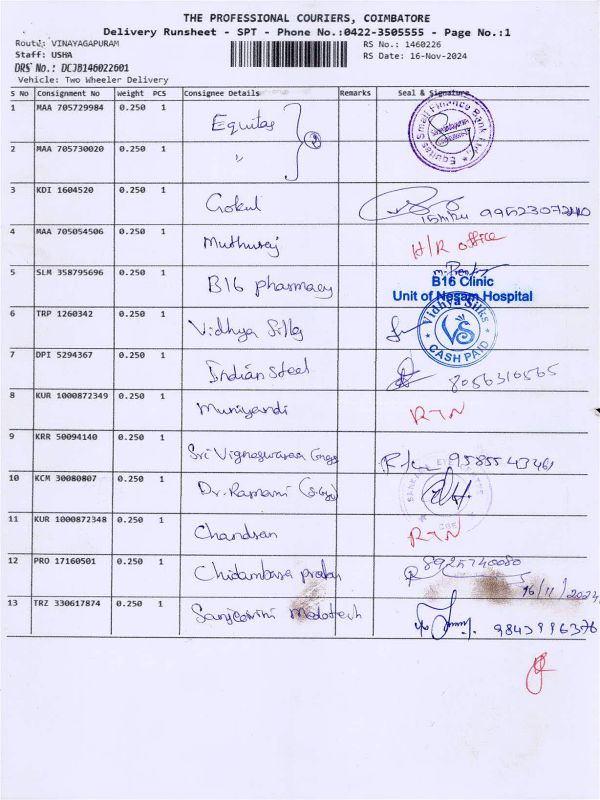 THE PROFESSIONAL COURIERS, COIMBATORE
Delivery Runsheet - SPT - Phone No.:0422-3505555 - Page No.:1
Route: VINAYAGAPURAM
Staff: USHA
DRS No.: DCJB146022601
Vehicle: Two Wheeler Delivery
RS No.: 1460226
RS Date: 16-Nov-2024
S No Consignment No Weight PCS Consignee Details Remarks Seal & Signature
1 MAA 705729984 0.250 1 Equitas
2 MAA 705730020 0.250 1 "
2
Equitas Small Finance Bank Ltd.
3 KDI 1604520 0.250 1 Gokul
4 MAA 705054506 0.250 1 Muthuraj H/R office
5 SLM 358795696 0.250 1 B16 pharmacy
B16 Clinic
Unit of Nesam Hospital
6 TRP 1260342 0.250 1 Vidhya Silks
Vidhya Silks
VS
CASH PAID
7 DPI 5294367 0.250 1 Indian Steel 8056310565
8 KUR 1000872349 0.250 1 Muniyandi RTN
9 KRR 50094140 0.250 1 Sri Vigneswaran
10 KCM 30080807 0.250 1 Dr. Ramani
11 KUR 1000872348 0.250 1 Chandran RTN
12 PRO 17160501 0.250 1 Chidambara 8925740080
16/11/2024
13 TRZ 330617874 0.250 1 9843996376